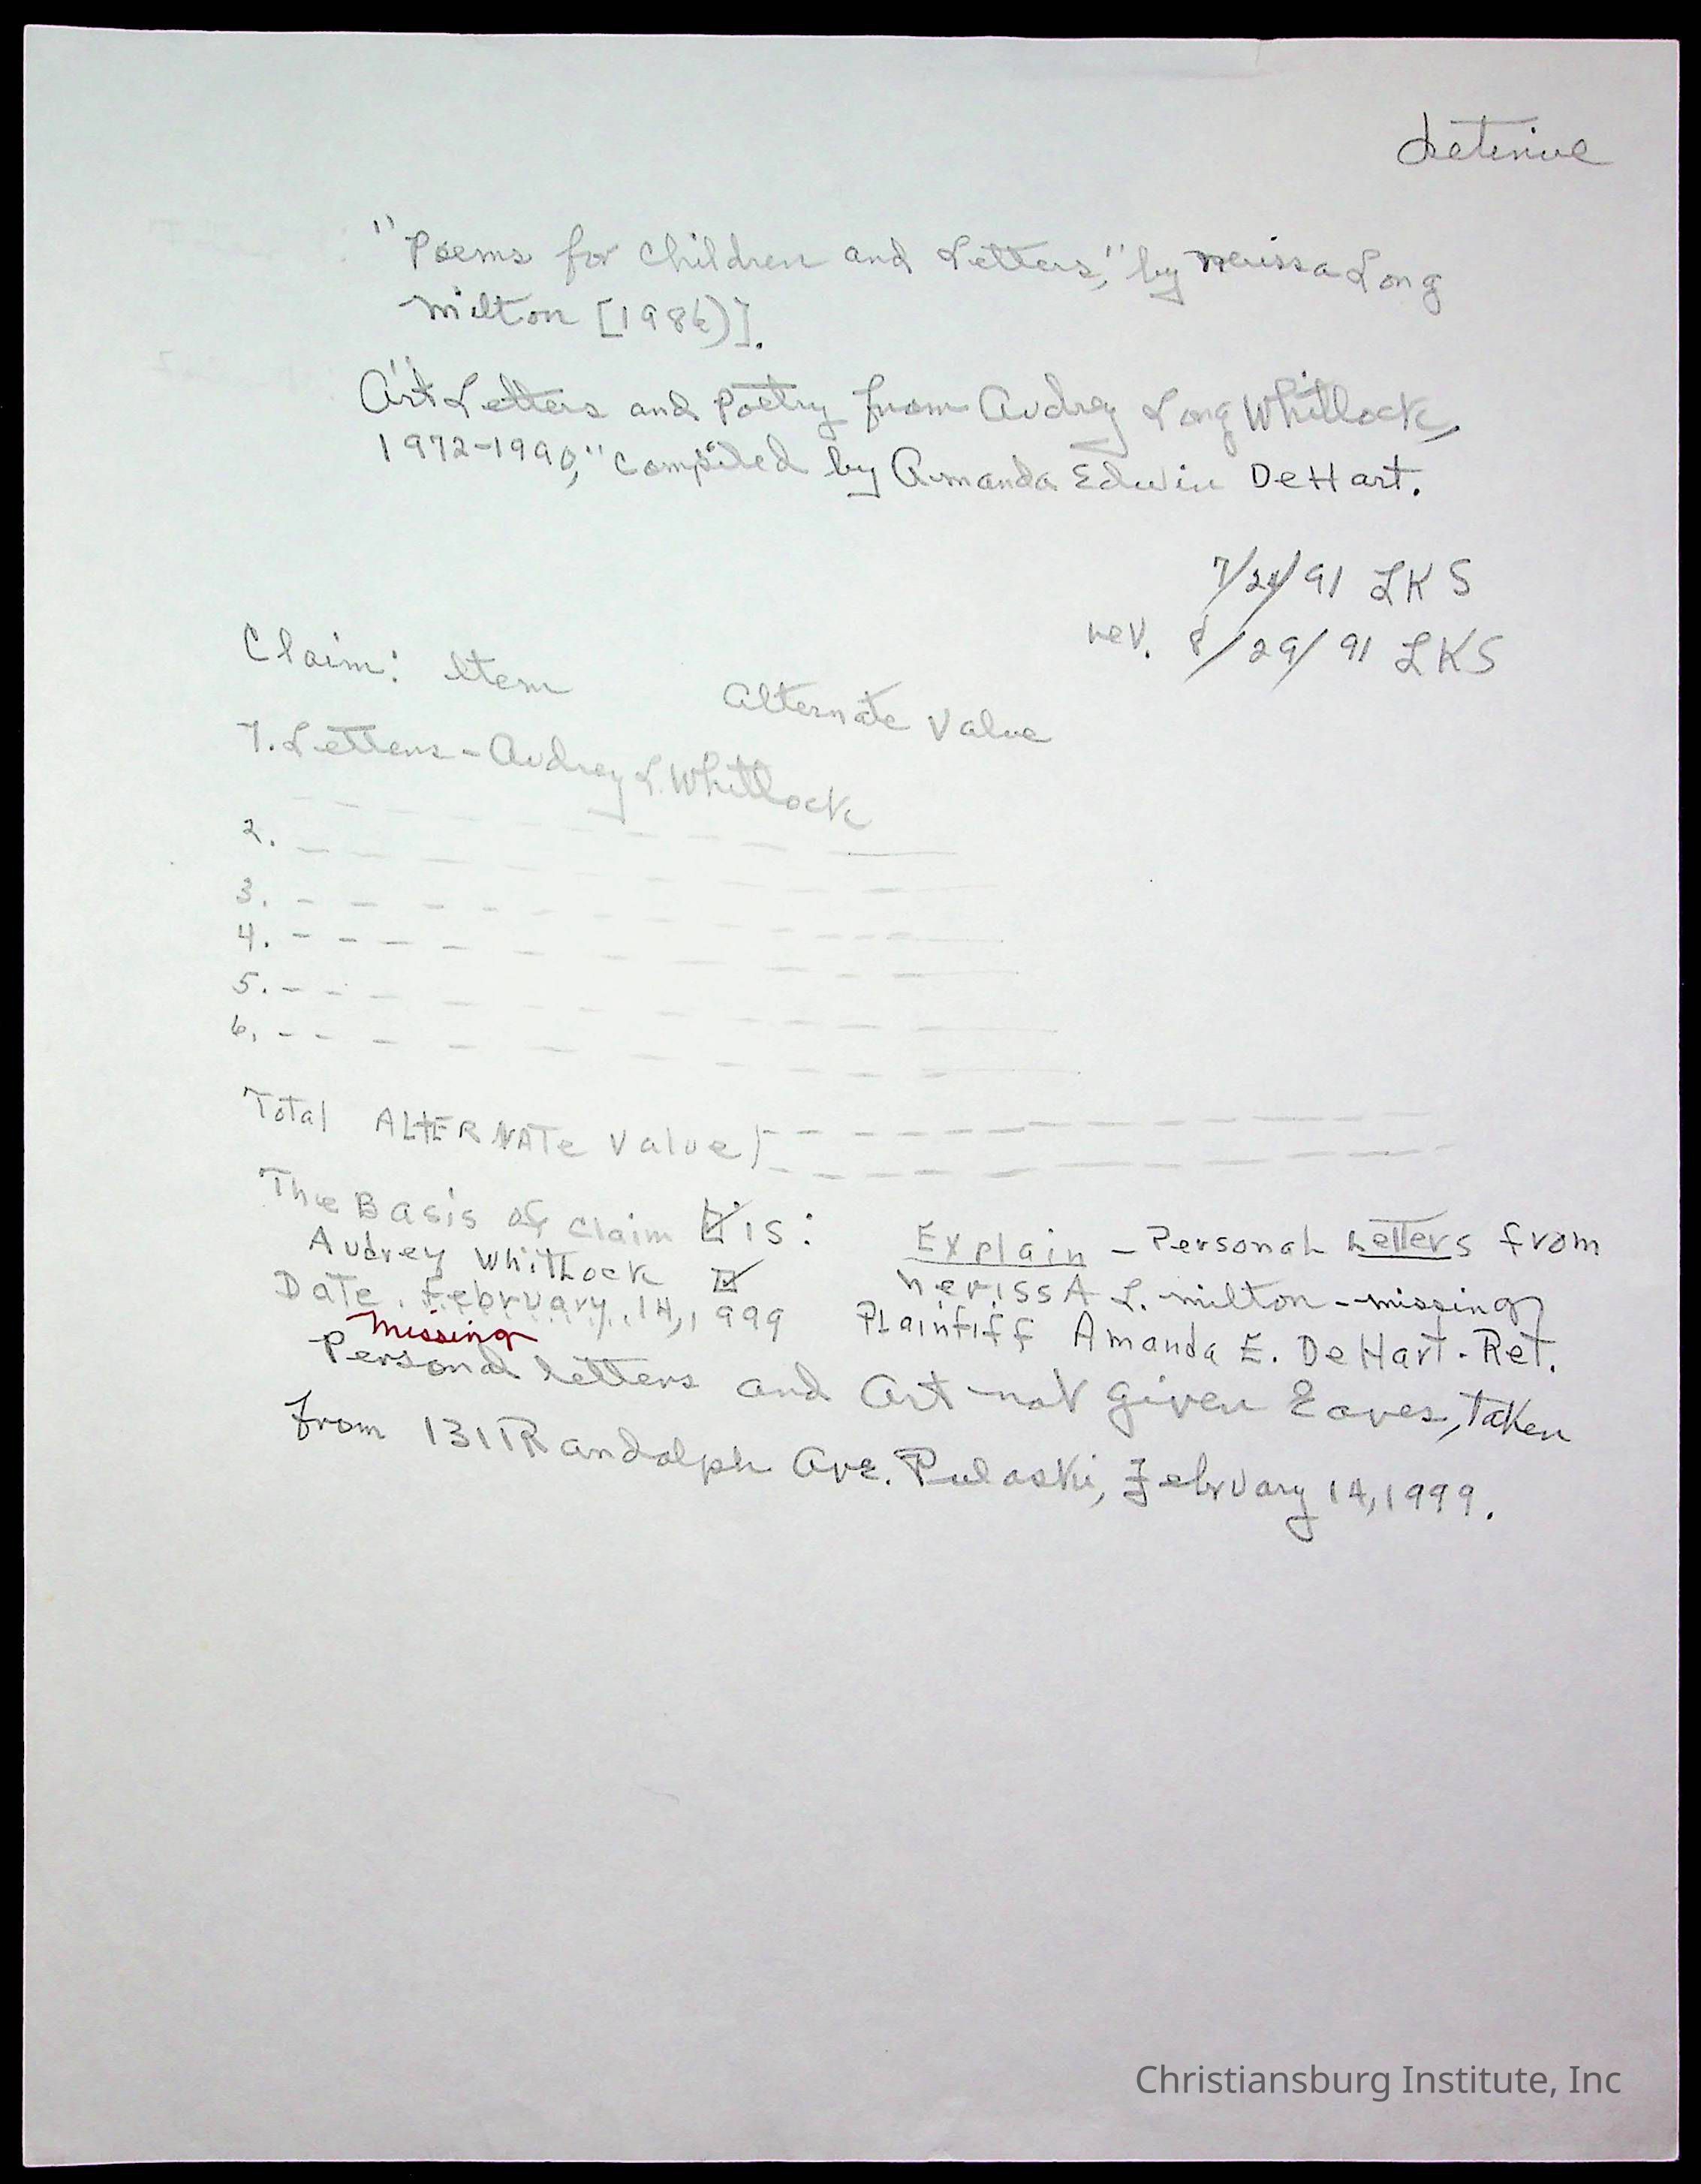 Detinue
"Poems for Children and Letters," by Nerissa Long
Milton [1986)].
"Art Letters and Poetry from Audrey Long Whitlock,
1972-1990," compiled by Amanda Edwin DeHart.
7/24/91 LKS
rev. 8/29/91 LKS
Claim: Item Alternate Value
1. Letters - Audrey L. Whitlock
2.
3.
4.
5.
6.
Total ALTERNATe Value)
The Basis of Claim ☑ is:
Audrey Whitlock ☑
Date. February. 14, 1999
Explain - Personal Letters from
NerissA L. Milton - missing
Plaintiff Amanda E. DeHart - Ret.
missing
Personal letters and Art not given Eaves, taken
from 1311 Randolph Ave. Pulaski, February 14, 1999.
Christiansburg Institute, Inc